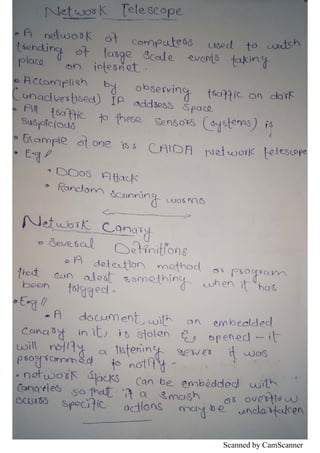 Network Telescope
• A network of computers used to watch
trending of large scale events taking
place on internet.
• Accomplish by observing traffic on dark
(unadvertised) IP address space
• All traffic to these sensors (systems) is
suspicious
• Example of one is : CAIDA Network telescope
• Eg //
• DDos Attack
• Random scanning worms
Network Canary
• Several Definitions
• A detection method or program
that can alert something when it has
been trigged.
• Eg //
• A document, with an embedded
canary in it, is stolen & opened - it
will notify a listening server it was
programmed to notify -
• network stacks can be embedded with
canaries so that if a smash or overflow
occurs specific actions may be undertaken
Scanned by CamScanner